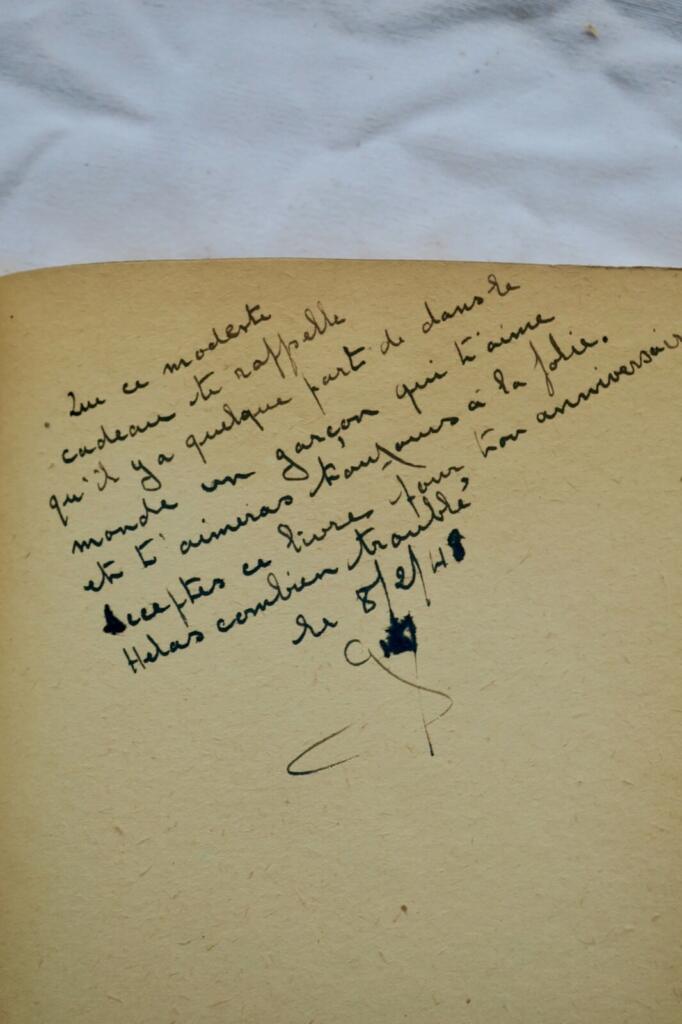 Que ce modeste
cadeau te rappelle
qu'il y a quelque part de dans le
monde un garçon qui t'aime
et t'aimeras toujours à la folie.
Acceptes ce livre pour ton anniversair
Helas combien troublé
le 8/2/48